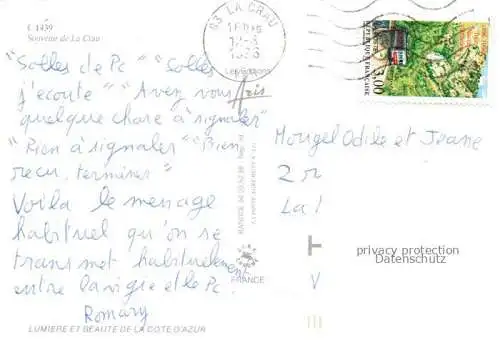 E 1459
Souvenir de La Crau
"Solles de Pc" "Solles
j'ecoute" "Avez vous
quelque chose à signaler"
"Rien à signaler" "Bien
recu. terminer"
Voilà le message
habituel qu'on se
transmet habituellement
entre la vigie et le Pc.
Romary
LUMIERE ET BEAUTE DE LA COTE D'AZUR
83 LA CRAU
FRANCE
REPUBLIQUE FRANCAISE
3,00
Mougel Odile et Jeane
2 r
La
V
privacy protection
Datenschutz